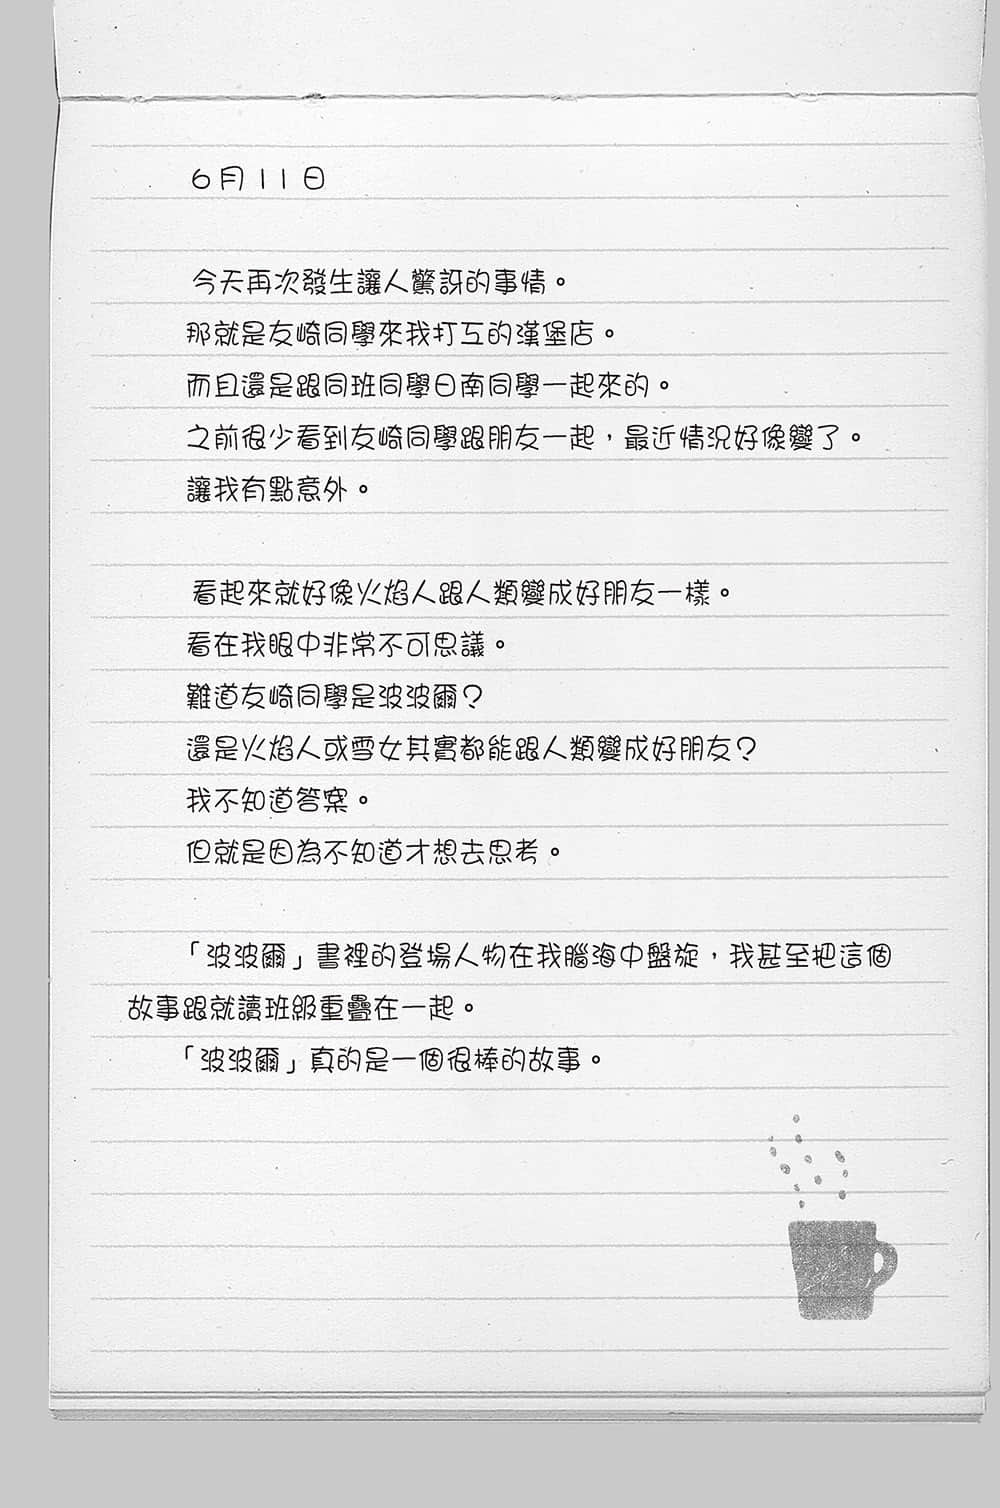 6月11日
今天再次發生讓人驚訝的事情。
那就是友崎同學來我打工的漢堡店。
而且還是跟同班同學日南同學一起來的。
之前很少看到友崎同學跟朋友一起，最近情況好像變了。
讓我有點意外。
看起來就好像火焰人跟人類變成好朋友一樣。
看在我眼中非常不可思議。
難道友崎同學是波波爾？
還是火焰人或雪女其實都能跟人類變成好朋友？
我不知道答案。
但就是因為不知道才想去思考。
「波波爾」書裡的登場人物在我腦海中盤旋，我甚至把這個
故事跟就讀班級重疊在一起。
「波波爾」真的是一個很棒的故事。